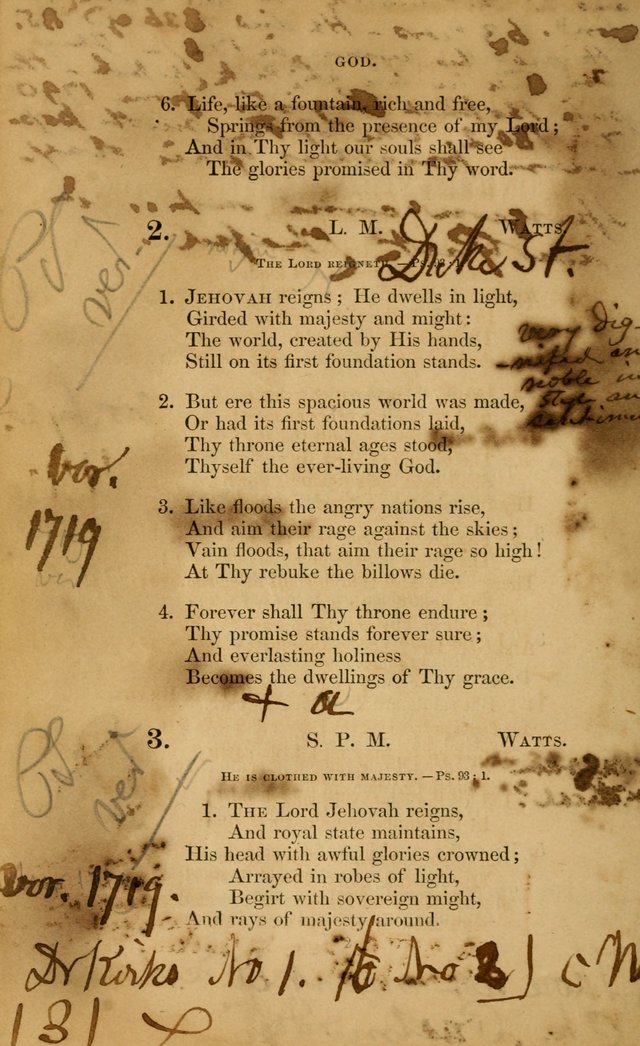 GOD.
6. Life, like a fountain, rich and free,
Springs from the presence of my Lord;
And in Thy light our souls shall see
The glories promised in Thy word.
2. L. M. WATTS.
Duke St.
THE LORD REIGNETH.—Ps. 93:1.
Ps
ver
1. JEHOVAH reigns; He dwells in light,
Girded with majesty and might:
The world, created by His hands,
Still on its first foundation stands.
very dig-
nified an
noble in
style an
sentimen
2. But ere this spacious world was made,
Or had its first foundations laid,
Thy throne eternal ages stood,
Thyself the ever-living God.
vor.
1719
3. Like floods the angry nations rise,
And aim their rage against the skies;
Vain floods, that aim their rage so high!
At Thy rebuke the billows die.
4. Forever shall Thy throne endure;
Thy promise stands forever sure;
And everlasting holiness
Becomes the dwellings of Thy grace.
+ a
3. S. P. M. WATTS.
Ps
ver
HE IS CLOTHED WITH MAJESTY.—Ps. 93:1.
1. THE Lord Jehovah reigns,
And royal state maintains,
His head with awful glories crowned;
Arrayed in robes of light,
Begirt with sovereign might,
And rays of majesty around.
vor. 1719.
Dr Kirks No 1.